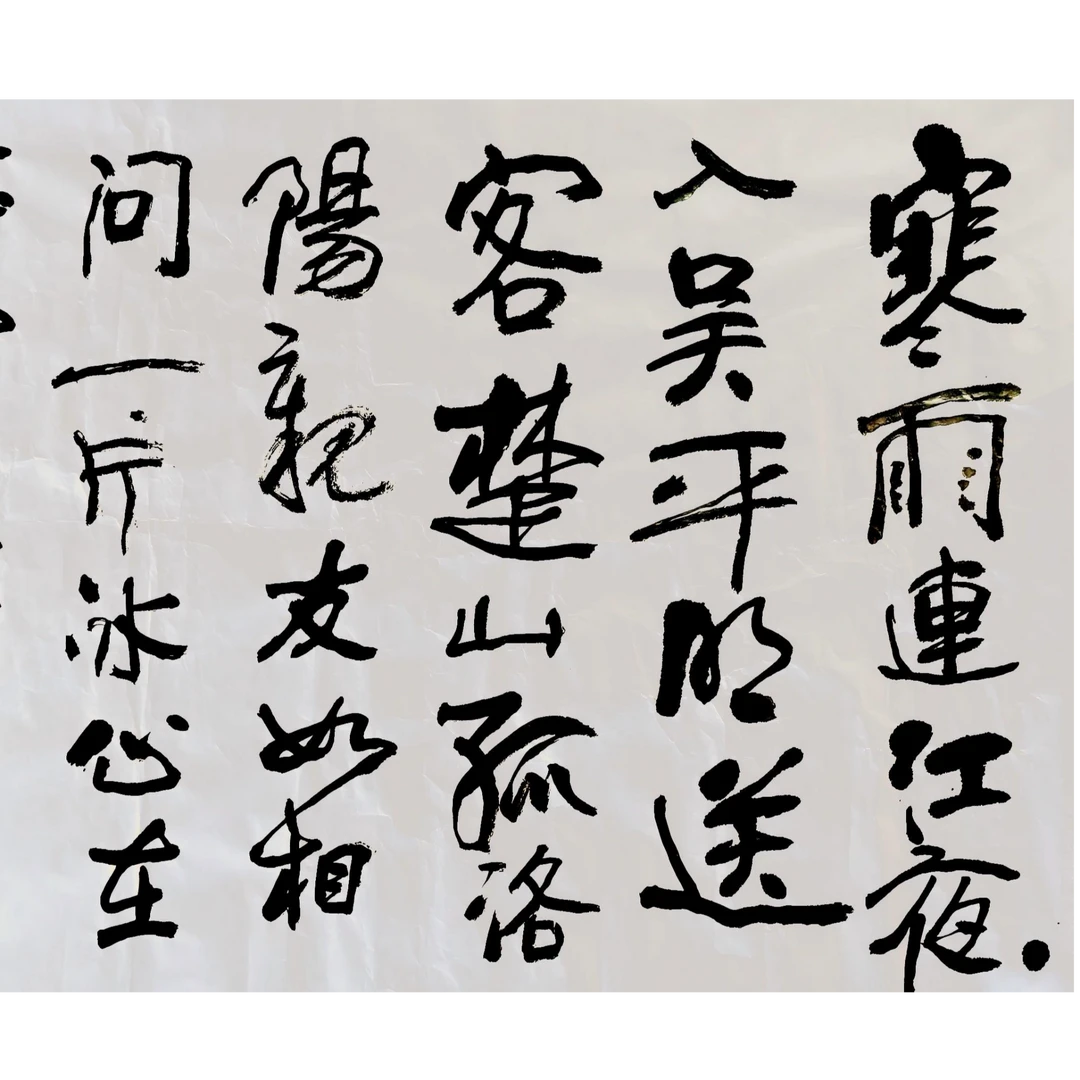 寒雨連江夜
入吴平明送
客楚山孤洛
陽親友如相
问一片冰心在